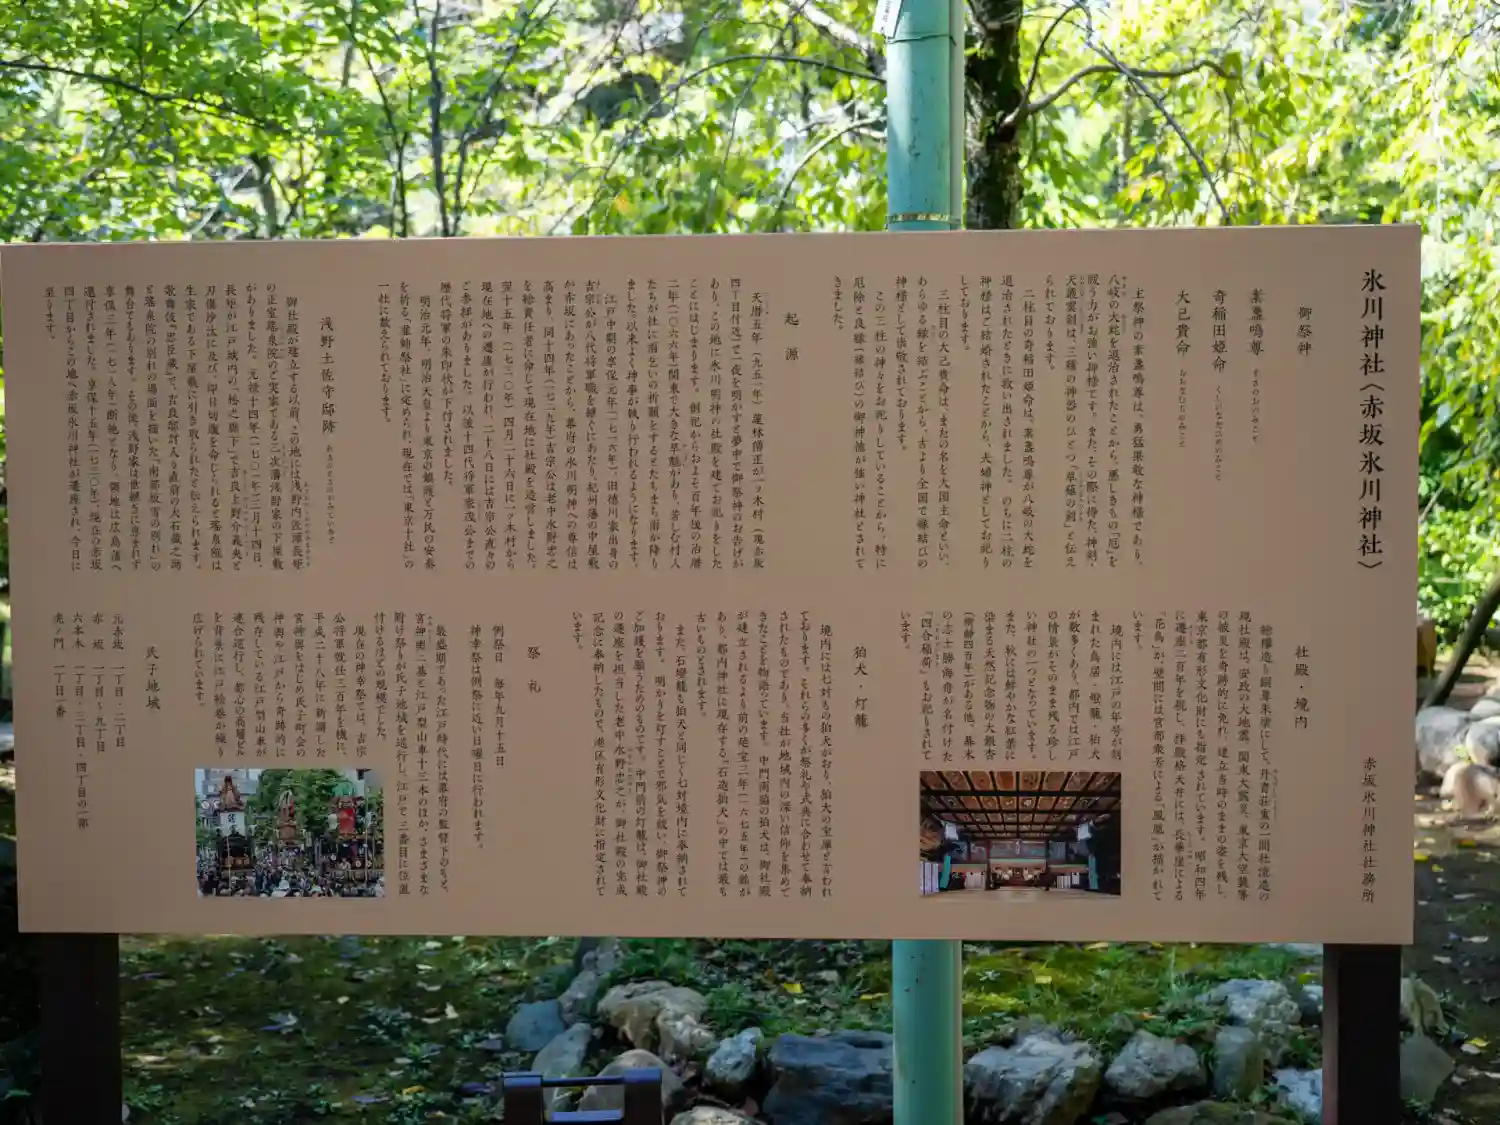 氷川神社〈赤坂氷川神社〉
赤坂氷川神社社務所
御祭神
素盞嗚尊 すさのおのみこと
奇稲田姫命 くしいなだひめのみこと
大己貴命 おおなむぢのみこと
主祭神の素盞嗚尊は、勇猛果敢な神様であり、
八岐の大蛇を退治されたことから、悪しきもの「厄」を
祓う力がお強い神様です。また、その際に得た、神剣・
天叢雲剣は、三種の神器のひとつ「草薙の剣」と伝え
られております。
二柱目の奇稲田姫命は、素盞嗚尊が八岐の大蛇を
退治されたときに救い出されました。のちに二柱の
神様はご結婚されたことから、夫婦神としてお祀り
しております。
三柱目の大己貴命は、またの名を大国主命といい、
あらゆる縁を結ぶことから、古より全国で縁結びの
神様として崇敬されております。
この三柱の神々をお祀りしていることから、特に
厄除と良縁（縁結び）の御神徳が強い神社とされて
きました。
起源
天暦五年（九五一年）、蓮林僧正が一ツ木村（現赤坂
四丁目付近）で一夜を明かすと夢中で御祭神のお告げが
あり、この地に氷川明神の社殿を建てお祀りをした
ことにはじまります。創祀からおよそ百年後の治暦
二年（一〇六六年）関東で大きな旱魃があり、苦しむ村人
たちが社に雨乞いの祈願をするとたちまち雨が降り
ました。以来よく神事が執り行われるようになります。
江戸中期の享保元年（一七一六年）、旧徳川家出身の
吉宗公が八代将軍職を継ぐにあたり、紀州藩の中屋敷
が赤坂にあったことから、幕府の氷川明神への尊信は
高まり、同十四年（一七二九年）吉宗公は老中水野忠之
を総責任者に命じて現在地に社殿を造営しました。
翌十五年（一七三〇年）四月二十六日に一ツ木村から
現在地への遷座が行われ、二十八日には吉宗公直々の
ご参拝がありました。以後十四代将軍家茂公までの
歴代将軍の朱印状が下付されました。
明治元年、明治天皇より東京の鎮護と万民の安泰
を祈る「准勅祭社」に定められ、現在では「東京十社」の
一社に数えられております。
浅野土佐守邸跡 あさのとさのかみていあと
御社殿が建立する以前、この地には浅野内匠頭長矩
の正室瑤泉院のご実家である三次藩浅野家の下屋敷
がありました。元禄十四年（一七〇一年）三月十四日、
長矩が江戸城内の「松之廊下」で吉良上野介義央と
刃傷沙汰に及び、即日切腹を命じられると瑤泉院は
生家である下屋敷に引き取られたと伝えられます。
歌舞伎「忠臣蔵」で、吉良邸討入り直前の大石蔵之助
と瑤泉院の別れの場面を描いた、「南部坂雪の別れ」の
舞台でもあります。その後、浅野家は世継ぎに恵まれず
享保三年（一七一八年）断絶となり、領地は広島藩へ
還付されました。享保十五年（一七三〇年）、現在の赤坂
四丁目からこの地へ赤坂氷川神社が遷座され、今日に
至ります。
社殿・境内
総欅造り銅葺朱塗にして、丹青荘重の一間社流造の
現社殿は、安政の大地震、関東大震災、東京大空襲等
の被災を奇跡的に免れ、建立当時のままの姿を残し、
東京都有形文化財にも指定されています。昭和四年
に遷座二百年を祝し、拝殿格天井には、長華崖による
「花鳥」が、壁間には宮部衆芳による「鳳凰」が描かれて
います。
境内には江戸の年号が刻
まれた鳥居・燈籠・狛犬
が数多くあり、都内では江戸
の情景がそのまま残る珍し
い神社の一つとなっています。
また、秋には鮮やかな紅葉に
染まる天然記念物の大銀杏
（樹齢四百年）がある他、幕末
の志士勝海舟が名付けた
「四合稲荷」もお祀りされて
います。
狛犬・灯籠
境内には七対もの狛犬がおり、狛犬の宝庫と言われ
ております。それらの多くが祭礼や式典に合わせて奉納
されたものであり、当社が地域内の深い信仰を集めて
きたことを物語っています。中門両脇の狛犬は、御社殿
が建立されるより前の延宝三年（一六七五年）の銘が
あり、都内神社に現存する「石造狛犬」の中では最も
古いものとされます。
また、石燈籠も狛犬と同じく七対境内に奉納されて
おります。明かりを灯すことで邪気を祓い、御祭神の
ご加護を願うためのものです。中門前の灯籠は、御社殿
の遷座を担当した老中水野忠之が、御社殿の完成
記念に奉納したもので、港区有形文化財に指定されて
います。
祭礼
例祭日 毎年九月十五日
神幸祭は例祭に近い日曜日に行われます。
最盛期であった江戸時代には幕府の監督下のもと、
宮神輿二基と江戸型山車十三本のほか、さまざまな
附け祭りが氏子地域を巡行し、江戸で三番目に位置
付けるほどの規模でした。
現在の神幸祭では、吉宗
公将軍就任三百年を機に、
平成二十八年に新調した
宮神輿をはじめ氏子町会の
神輿や江戸から奇跡的に
残存している江戸型山車が
連合巡行し、都心の高層ビル
を背景に江戸絵巻が繰り
広げられています。
氏子地域
元赤坂 一丁目・二丁目
赤坂 一丁目～九丁目
六本木 一丁目・二丁目・四丁目の一部
虎ノ門 一丁目一番